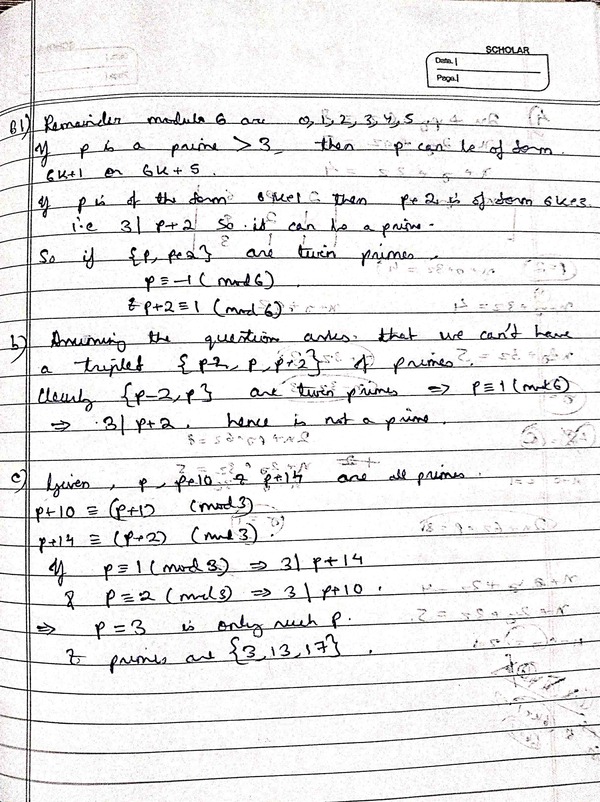 SCHOLAR
Date.
Page.
B1) Remainder modulo 6 are 0, 1, 2, 3, 4, 5
If p is a prime > 3, then p can be of form
6k+1 or 6k+5.
If p is of the form 6k+1 then p+2 is of form 6k+3
i.e 3| p+2 so it can be a prime.
So if {p, p+2} are twin primes.
p ≡ -1 (mod 6)
& p+2 ≡ 1 (mod 6)
b) Assuming the question asks that we can't have
a triplet {p-2, p, p+2} of primes.
Clearly {p-2, p} are twin primes ⇒ p ≡ 1 (mod 6)
⇒ 3| p+2. hence is not a prime.
c) Given, p, p+10 & p+14 are all primes.
p+10 ≡ (p+1) (mod 3)
p+14 ≡ (p+2) (mod 3).
If p ≡ 1 (mod 3) ⇒ 3| p+14
& p ≡ 2 (mod 3) ⇒ 3| p+10.
⇒ p = 3 is only such p.
& primes are {3, 13, 17}.